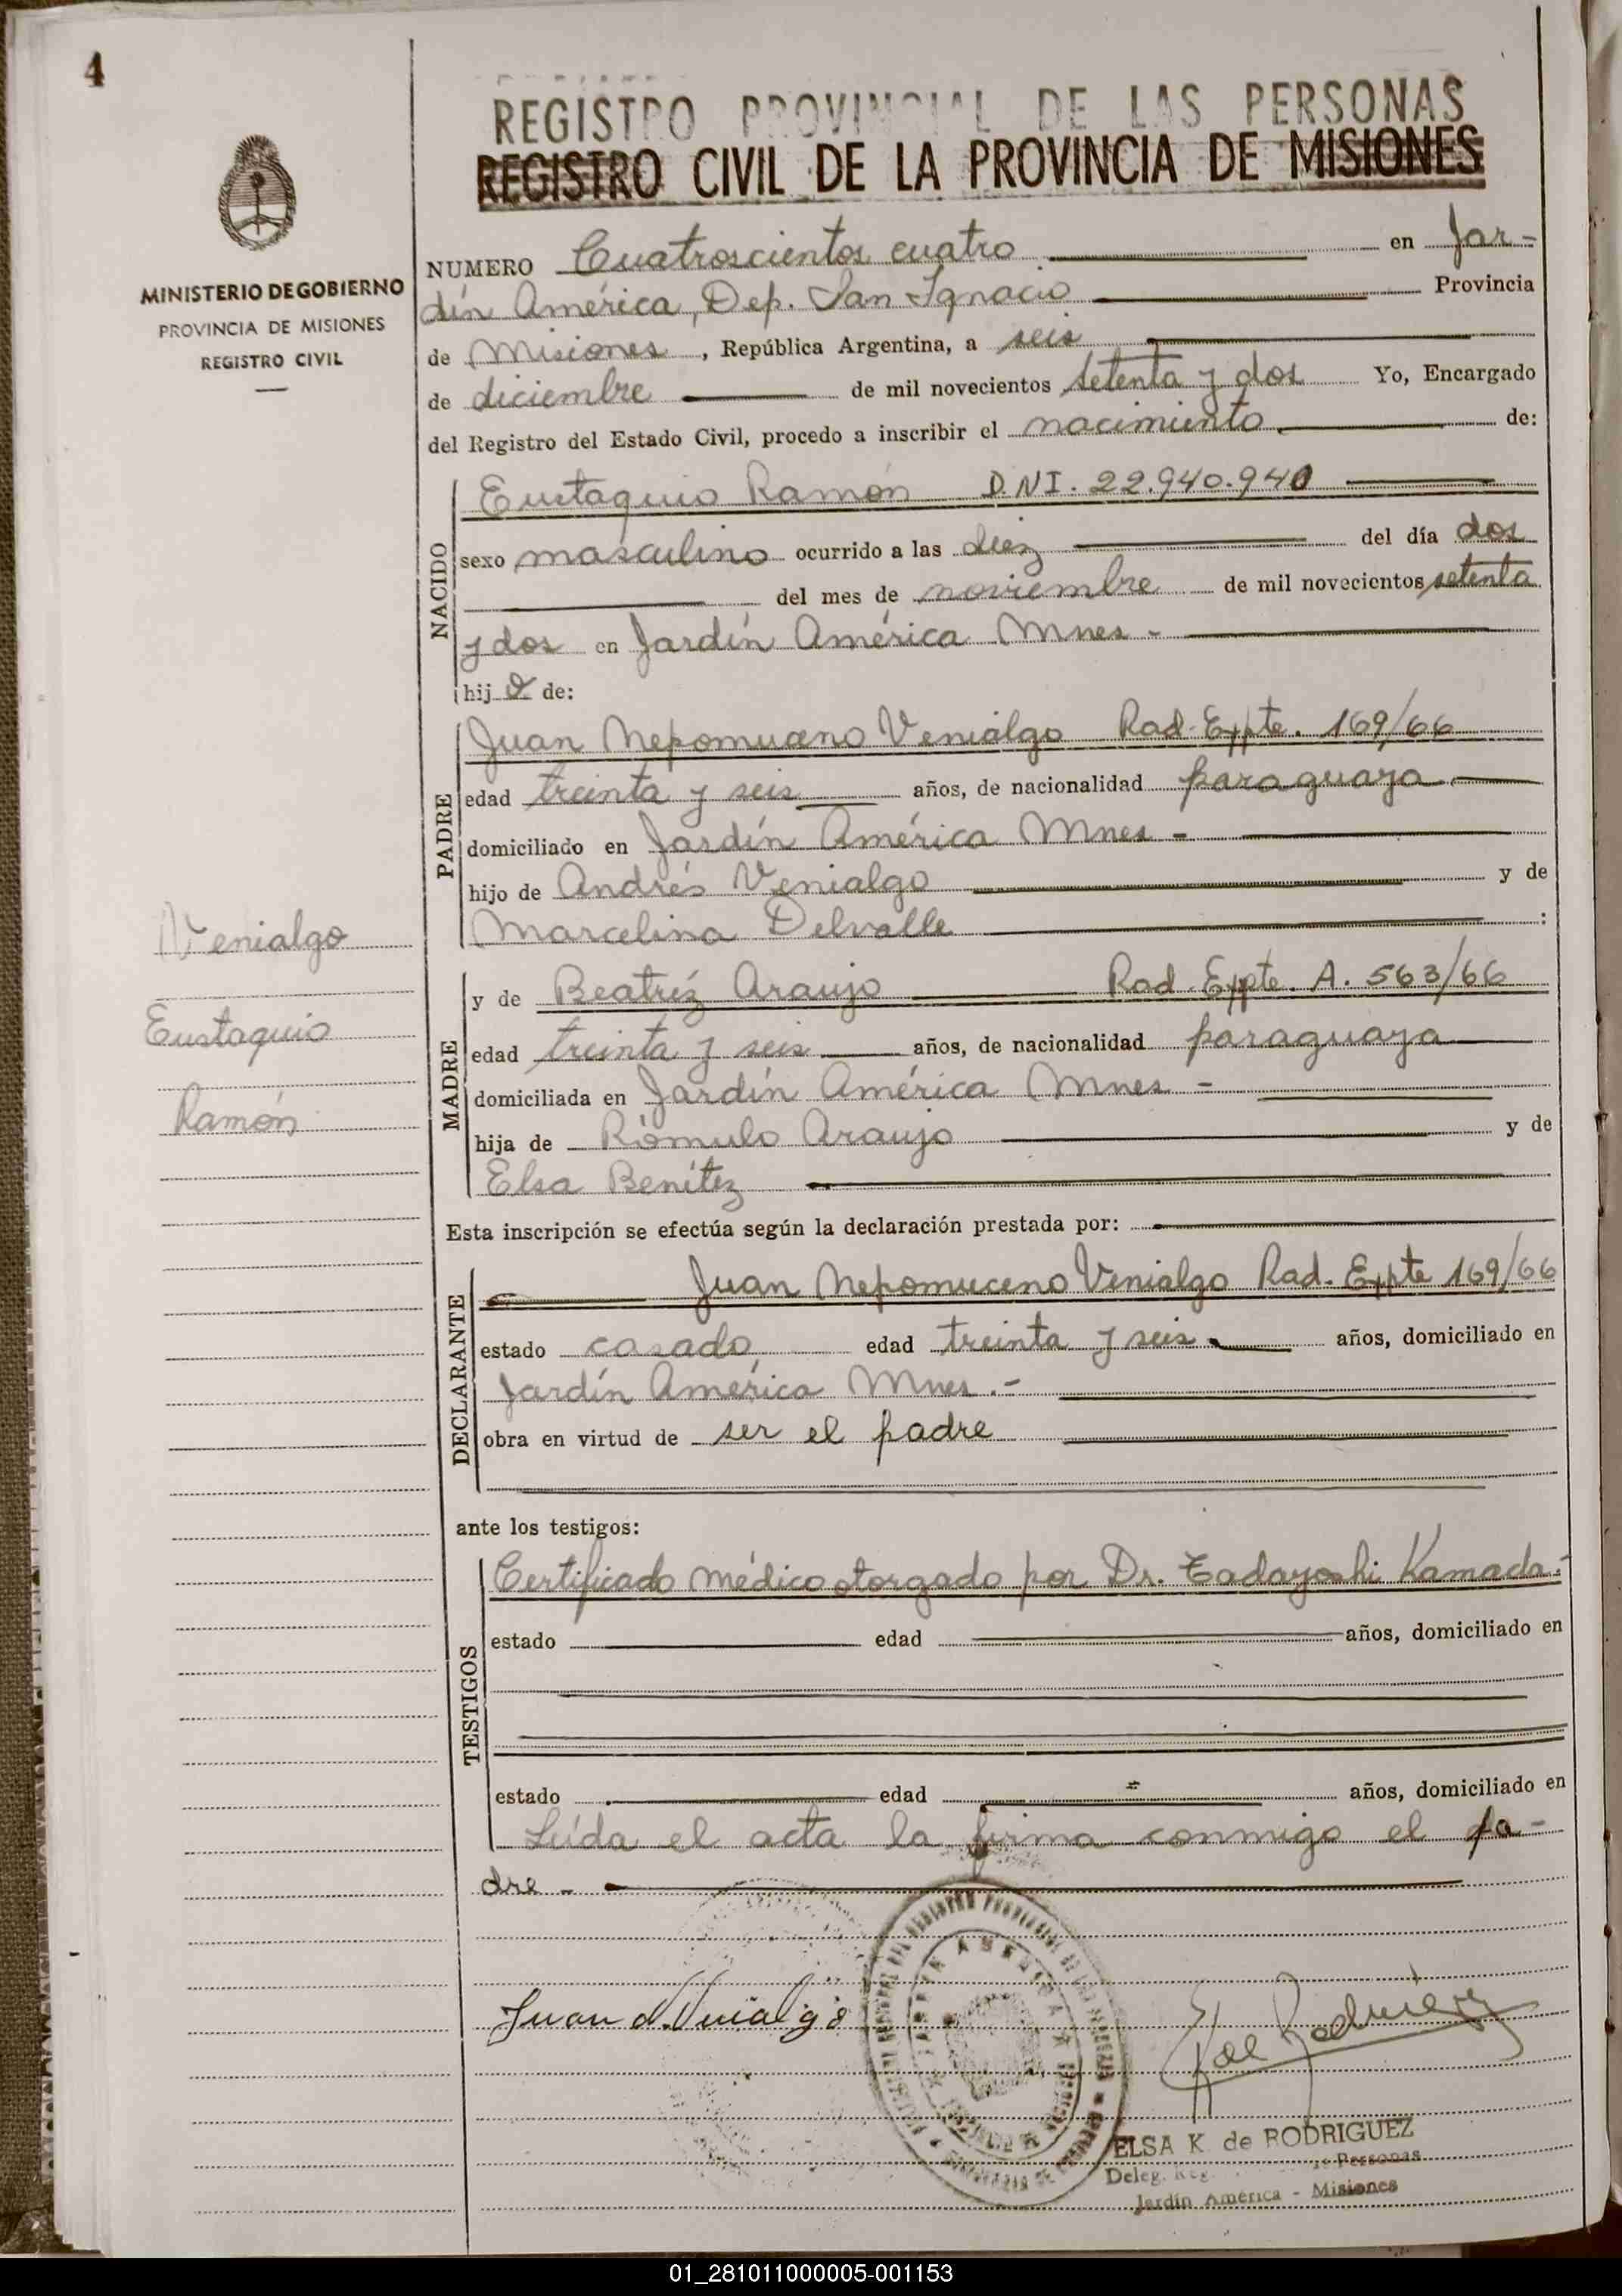 4
REGISTRO PROVINCIAL DE LAS PERSONAS
REGISTRO CIVIL DE LA PROVINCIA DE MISIONES
MINISTERIO DE GOBIERNO
PROVINCIA DE MISIONES
REGISTRO CIVIL
NUMERO Cuatroscientos cuatro en Jar-
dín América, Dep. San Ignacio Provincia
de Misiones, República Argentina, a seis
de diciembre de mil novecientos setenta y dos Yo, Encargado
del Registro del Estado Civil, procedo a inscribir el nacimiento de:
NACIDO
Eustaquio Ramón D.N.I. 22.940.940
sexo masculino ocurrido a las diez del día dos
del mes de noviembre de mil novecientos setenta
y dos en Jardín América Mnes -
hijo de:
PADRE
Juan Nepomuceno Venialgo Rad. Expte. 169/66
edad treinta y seis años, de nacionalidad paraguaya
domiciliado en Jardín América Mnes -
hijo de Andrés Venialgo y de
Marcelina Delvalle :
Venialgo
Eustaquio
Ramón
MADRE
y de Beatríz Araujo Rad. Expte. A. 563/66
edad treinta y seis años, de nacionalidad paraguaya
domiciliada en Jardín América Mnes -
hija de Rómulo Araujo y de
Elsa Benítez
Esta inscripción se efectúa según la declaración prestada por:
DECLARANTE
Juan Nepomuceno Venialgo Rad. Expte 169/66
estado casado edad treinta y seis años, domiciliado en
Jardín América Mnes.-
obra en virtud de ser el padre
ante los testigos:
TESTIGOS
Certificado médico otorgado por Dr. Tadayoshi Kamada.-
estado edad años, domiciliado en
estado edad años, domiciliado en
Leída el acta la firma conmigo el pa-
dre -
ELSA K. de RODRIGUEZ
Deleg. Reg. Personas
Jardín América - Misiones
01_281011000005-001153